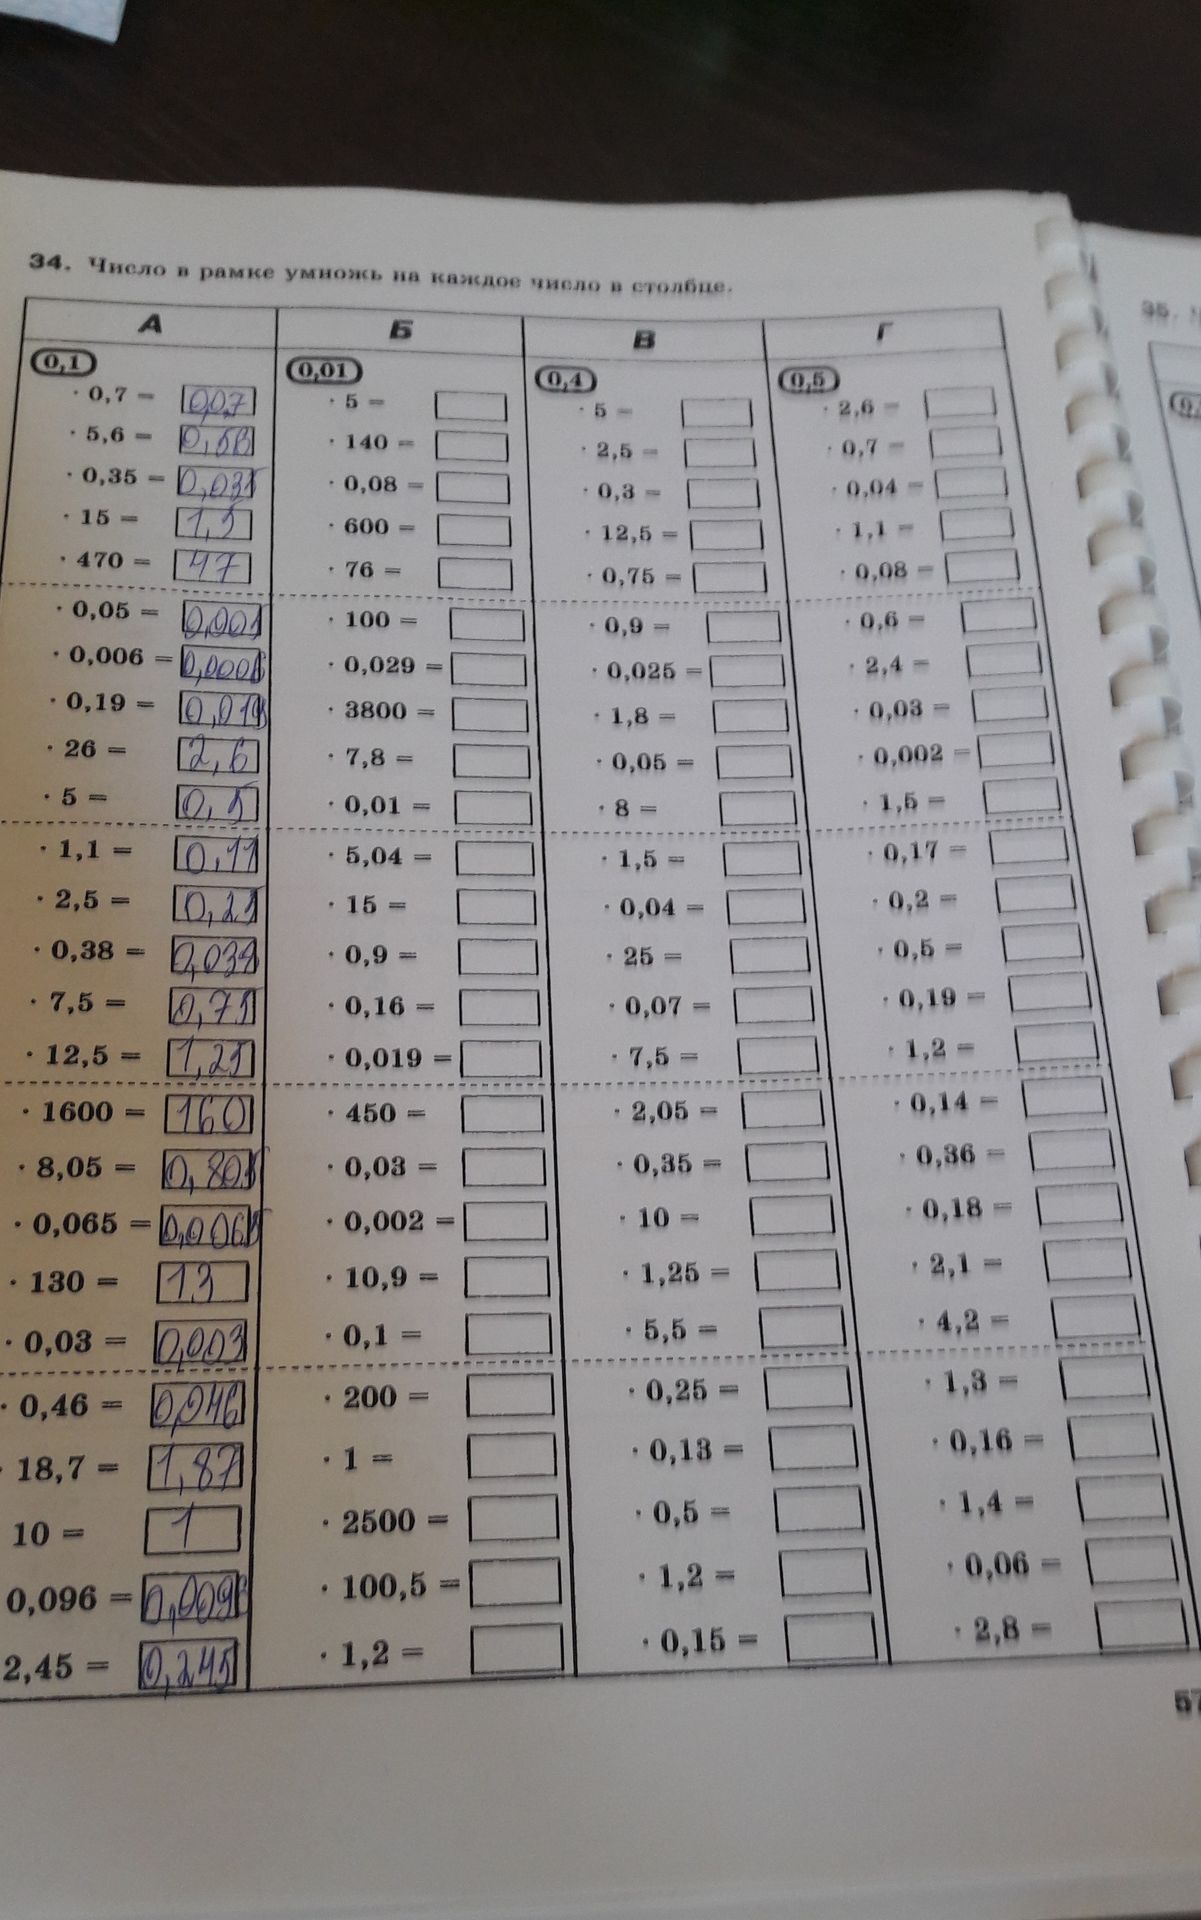 34. Число в рамке умножь на каждое число в столбце.
35.
А Б В Г
0,1 0,01 0,4 0,5
· 0,7 = 0,07 · 5 = · 5 = · 2,6 =
· 5,6 = 0,56 · 140 = · 2,5 = · 0,7 =
· 0,35 = 0,035 · 0,08 = · 0,3 = · 0,04 =
· 15 = 1,5 · 600 = · 12,5 = · 1,1 =
· 470 = 47 · 76 = · 0,75 = · 0,08 =
· 0,05 = 0,005 · 100 = · 0,9 = · 0,6 =
· 0,006 = 0,0006 · 0,029 = · 0,025 = · 2,4 =
· 0,19 = 0,019 · 3800 = · 1,8 = · 0,03 =
· 26 = 2,6 · 7,8 = · 0,05 = · 0,002 =
· 5 = 0,5 · 0,01 = · 8 = · 1,5 =
· 1,1 = 0,11 · 5,04 = · 1,5 = · 0,17 =
· 2,5 = 0,25 · 15 = · 0,04 = · 0,2 =
· 0,38 = 0,038 · 0,9 = · 25 = · 0,5 =
· 7,5 = 0,75 · 0,16 = · 0,07 = · 0,19 =
· 12,5 = 1,25 · 0,019 = · 7,5 = · 1,2 =
· 1600 = 160 · 450 = · 2,05 = · 0,14 =
· 8,05 = 0,805 · 0,03 = · 0,35 = · 0,36 =
· 0,065 = 0,0065 · 0,002 = · 10 = · 0,18 =
· 130 = 13 · 10,9 = · 1,25 = · 2,1 =
· 0,03 = 0,003 · 0,1 = · 5,5 = · 4,2 =
· 0,46 = 0,046 · 200 = · 0,25 = · 1,3 =
· 18,7 = 1,87 · 1 = · 0,13 = · 0,16 =
10 = 1 · 2500 = · 0,5 = · 1,4 =
0,096 = 0,0096 · 100,5 = · 1,2 = · 0,06 =
2,45 = 0,245 · 1,2 = · 0,15 = · 2,8 =
57